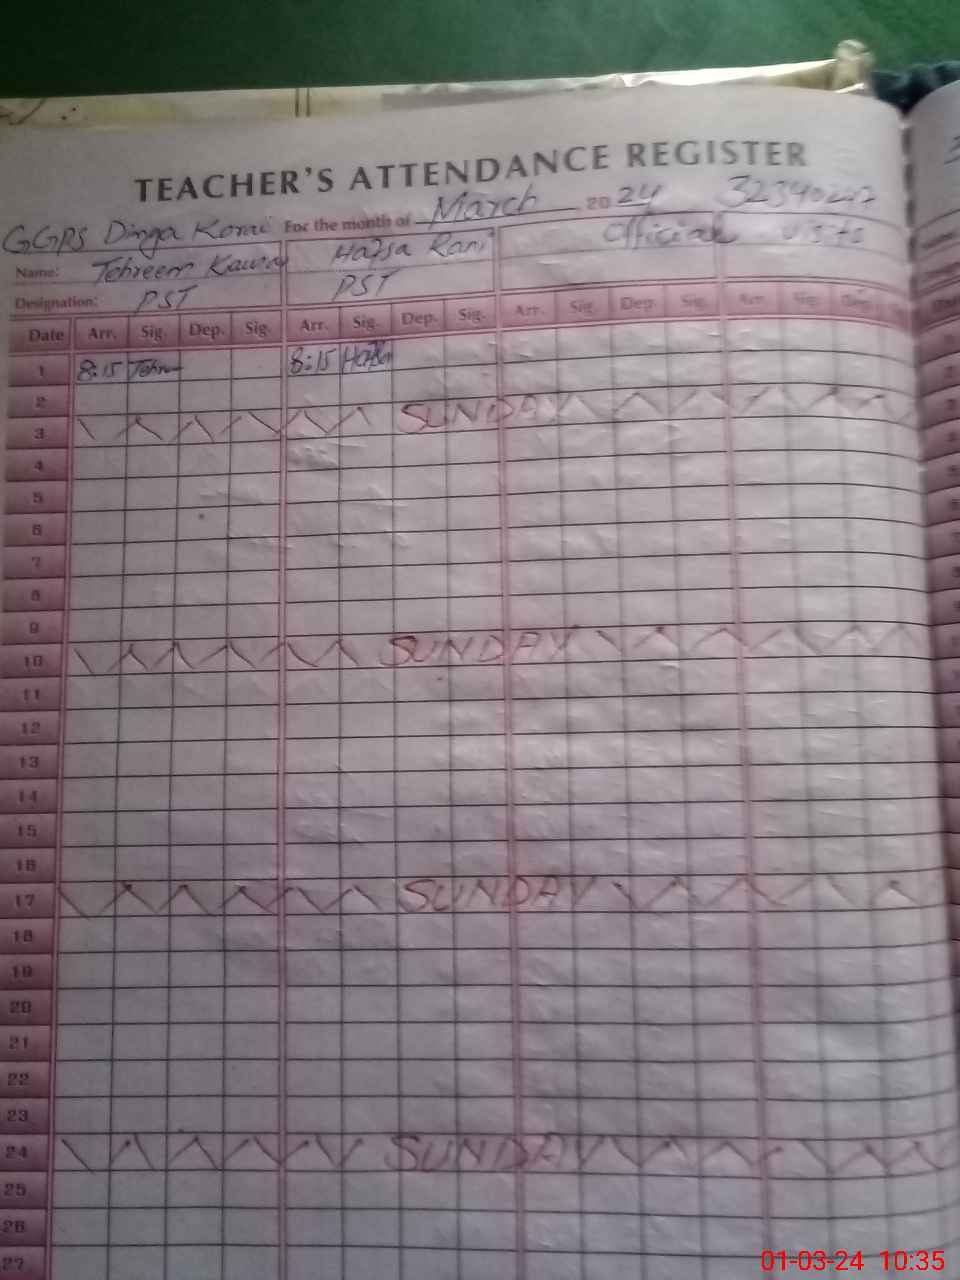 TEACHER'S ATTENDANCE REGISTER
GGPS Dinga Korai For the month of March 2024 32340247
Name: Tehreem Kawal Hafsa Rani Official visits
Designation: PST PST
Date Arr. Sig. Dep. Sig. Arr. Sig. Dep. Sig. Arr. Sig. Dep. Sig. Arr. Sig. Dep.
1 8:15 8:15 Hafsa
2
3 SUNDAY
4
5
6
7
8
9
10 SUNDAY
11
12
13
14
15
16
17 SUNDAY
18
19
20
21
22
23
24 SUNDAY
25
26
27
01-03-24 10:35